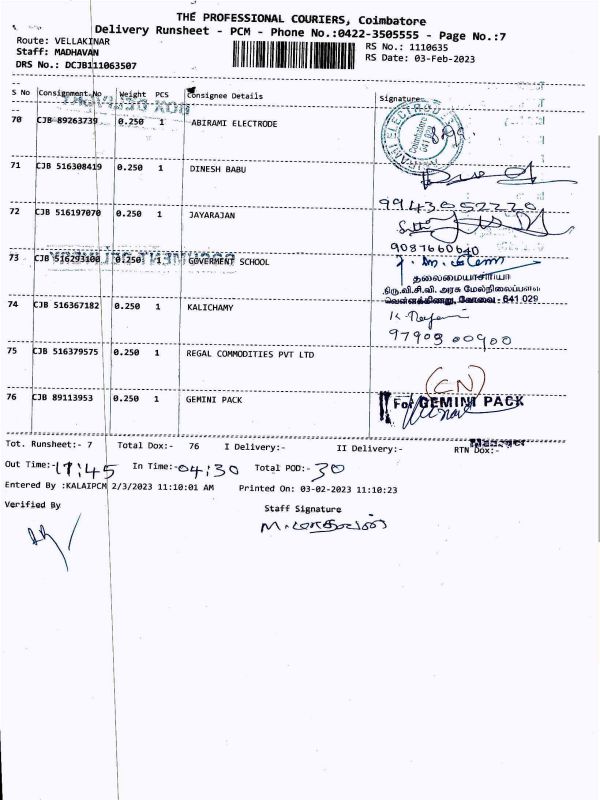 THE PROFESSIONAL COURIERS, Coimbatore
Delivery Runsheet - PCM - Phone No.:0422-3505555 - Page No.:7
Route: VELLAKINAR
Staff: MADHAVAN
DRS No.: DCJB111063507
RS No.: 1110635
RS Date: 03-Feb-2023
S No Consignment No Weight PCS Consignee Details Signature
70 CJB 89263739 0.250 1 ABIRAMI ELECTRODE
Coimbatore
641 029
71 CJB 516308419 0.250 1 DINESH BABU
9943052220
72 CJB 516197070 0.250 1 JAYARAJAN
9087660640
73 CJB 516293100 0.250 1 GOVERMENT SCHOOL
தலைமையாசிரியர்
திரு.வி.சி.வி. அரசு மேல்நிலைப்பள்ளி
வெள்ளக்கிணறு, கோவை - 641 029
74 CJB 516367182 0.250 1 KALICHAMY
9790300900
75 CJB 516379575 0.250 1 REGAL COMMODITIES PVT LTD
(CN)
76 CJB 89113953 0.250 1 GEMINI PACK
For GEMINI PACK
Manager
Tot. Runsheet:- 7 Total Dox:- 76 I Delivery:- II Delivery:- RTN Dox:-
Out Time:-17:45 In Time:-04:30 Total POD:-30
Entered By :KALAIPCM 2/3/2023 11:10:01 AM Printed On: 03-02-2023 11:10:23
Verified By
Staff Signature
M.மாதவன்